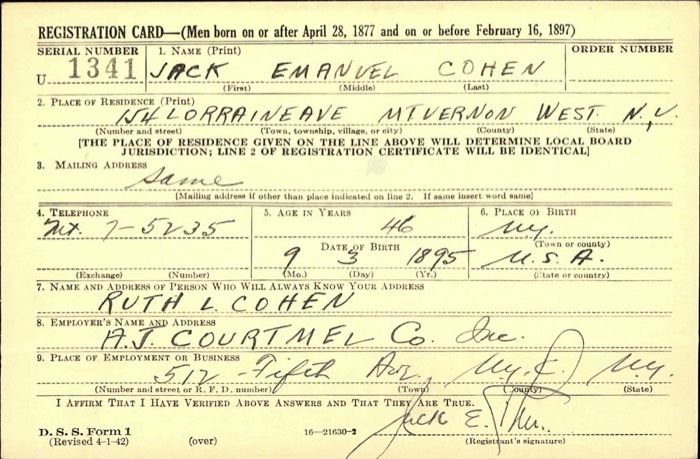 REGISTRATION CARD—(Men born on or after April 28, 1877 and on or before February 16, 1897)
SERIAL NUMBER 1. NAME (Print) ORDER NUMBER
U 1341 JACK EMANUEL COHEN
(First) (Middle) (Last)
2. PLACE OF RESIDENCE (Print)
154 LORRAINE AVE MT VERNON WEST. N.Y.
(Number and street) (Town, township, village, or city) (County) (State)
[THE PLACE OF RESIDENCE GIVEN ON THE LINE ABOVE WILL DETERMINE LOCAL BOARD
JURISDICTION; LINE 2 OF REGISTRATION CERTIFICATE WILL BE IDENTICAL]
3. MAILING ADDRESS
Same
[Mailing address if other than place indicated on line 2. If same insert word same]
4. TELEPHONE 5. AGE IN YEARS 6. PLACE OF BIRTH
7-5235 46 N.Y.
DATE OF BIRTH (Town or county)
9 3 1895 U.S.A.
(Exchange) (Number) (Mo.) (Day) (Yr.) (State or country)
7. NAME AND ADDRESS OF PERSON WHO WILL ALWAYS KNOW YOUR ADDRESS
RUTH L. COHEN
8. EMPLOYER'S NAME AND ADDRESS
A.J. COURTMEL Co. Inc.
9. PLACE OF EMPLOYMENT OR BUSINESS
512 - Fifth Ave N.Y.C. N.Y.
(Number and street or R. F. D. number) (Town) (County) (State)
I AFFIRM THAT I HAVE VERIFIED ABOVE ANSWERS AND THAT THEY ARE TRUE.
Jack E.
D. S. S. Form 1
(Revised 4-1-42) (over) 16—21630-2 (Registrant's signature)